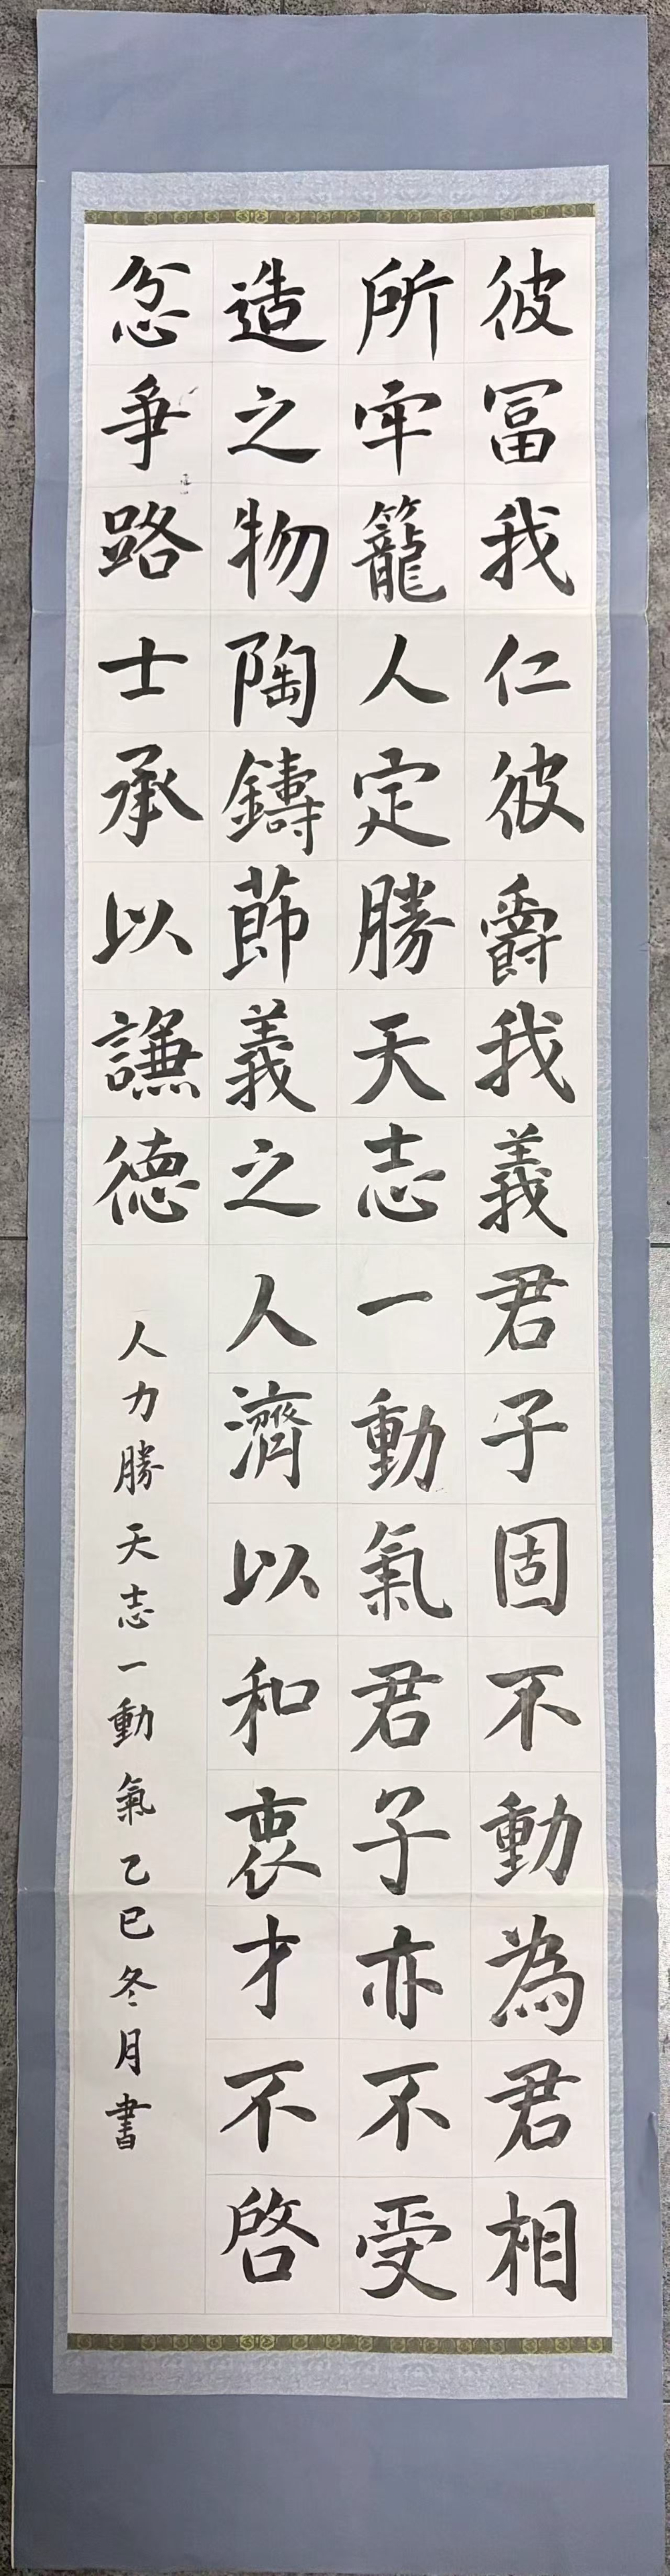 彼冨我仁彼爵我義君子固不動為君相
所牢籠人定勝天志一動氣君子亦不受
造之物陶鑄莭義之人濟以和衷才不啓
忿爭路士承以謙德
人力勝天志一動氣乙巳冬月書